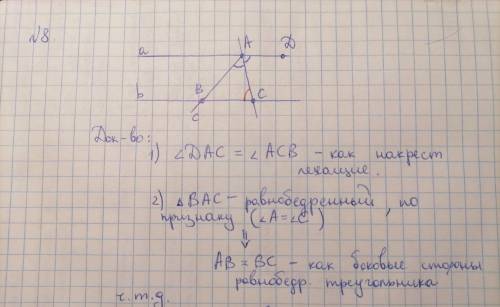 №8.
a A D
b B C
c
Док-во:
1) ∠DAC = ∠ACB – как накрест
лежащие.
2) △BAC – равнобедренный, по
признаку (∠A=∠C)
⇓
AB = BC – как боковые стороны
равнобедр. треугольника
ч.т.д.